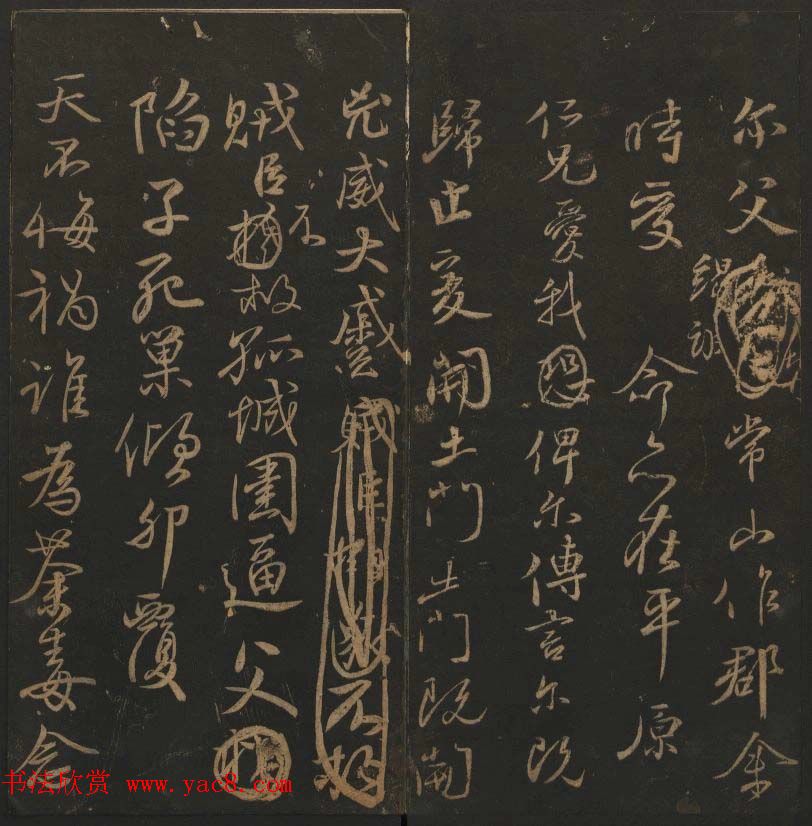 尔父竭誠常山作郡余
時受命亦在平原
仁兄愛我俾尔傳言尔既
歸止爰開土門土門既開
凶威大蹙
賊臣不救孤城圍逼父
陷子死巢傾卵覆
天不悔禍誰為荼毒念
书法欣赏 www.yac8.com